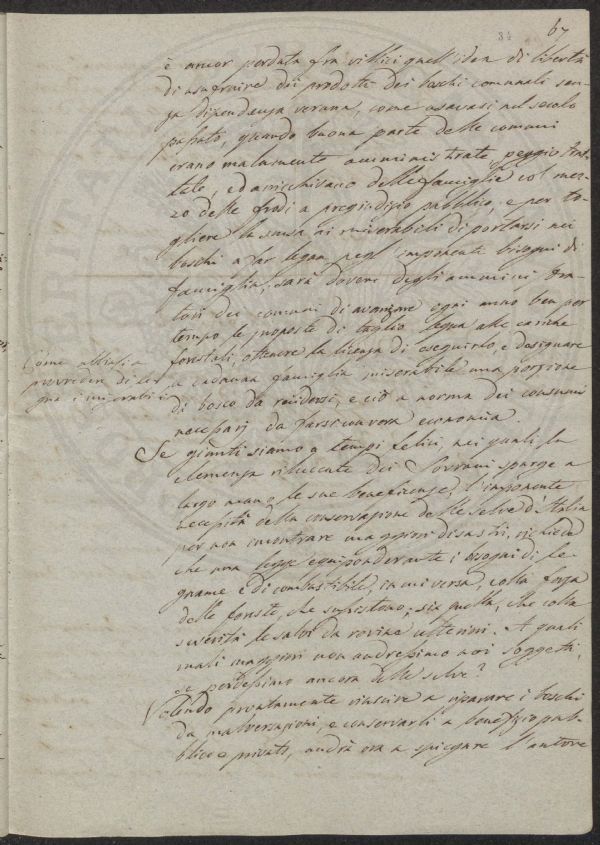 34
67
è ancor perduta fra villici quell'idea di libertà
di usufruire dei prodotti dei boschi comunali sen-
za dipendenza veruna, come usavasi nel secolo
passato, quando buona parte delle comuni
erano malamente amministrate, peggio trat-
tate, ed arrichivano delle famiglie col mez-
zo delle frodi a pregiudizio pubblico, e per to-
gliere la scusa ai miserabili di portarsi nei
boschi a far legna pegl'imponenti bisogni di
famiglia, sarà dovere degli amminis tra-
tori dei comuni di avanzare ogni anno ben per
tempo le proposte di taglio legna alle cariche
forestali, ottenere la licenza di eseguirlo, e designare
a cadauna famiglia miserabile una porzione
di bosco da recidersi, e ciò a norma dei consumi
necessarj da farsi con vera economia.
Come abbiasi a
provveder di le-
gna i miserabili
Se giunti siamo a tempi felici, nei quali la
clemenza rilucente dei Sovrani sparge a
larga mano le sue beneficenze, l'imponente
necessità della conservazione delle selve d'Italia
per non incontrare maggiori disastri, richiede
che una legge equiponderante i bisogni di le-
gname e di combustibile, in cui versa, colla forza
delle foreste, che sussistono, sia quella, che colla
severità le salvi da rovine ulteriori. A quali
mali maggiori non andressimo noi soggetti,
se perdessimo ancora delle selve?
Volendo prontamente riuscire a riparare i boschi
da malversazioni, e conservarli a benefizio pub-
blico e privato, andrà ora a spiegare l'autore